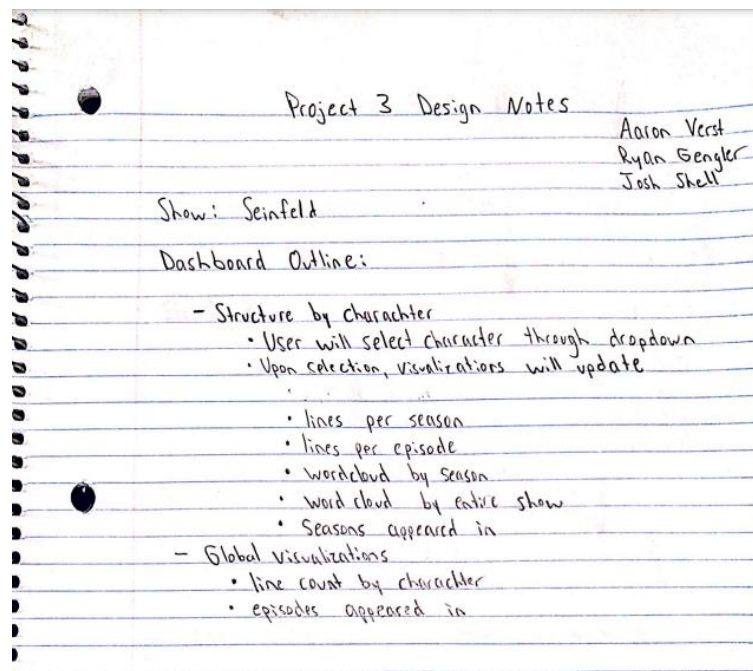 Project 3 Design Notes
Aaron Verst
Ryan Gengler
Josh Shell
Show: Seinfeld
Dashboard Outline:
- Structure by charachter
• User will select character through dropdown
• Upon selection, visualizations will update
• lines per season
• lines per episode
• wordcloud by season
• word cloud by entire show
• Seasons appeared in
- Global visualizations
• line count by charachter
• episodes appeared in